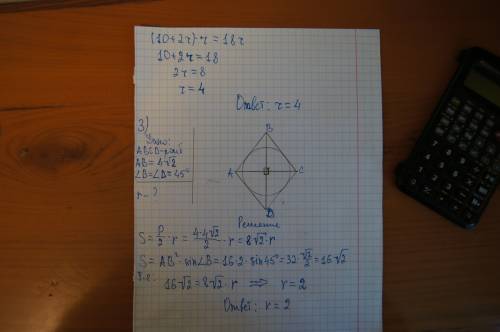 (10+2r)·r=18r
10+2r=18
2r=8
r=4
Ответ: r=4
3)
Дано:
ABCD-ромб
AB=4√2
∠B=∠D=45°
r-?
B
A
C
D
Решение
S=P/2·r=4·4√2/2·r=8√2·r
S=AB²·sin∠B=16·2·sin45°=32·√2/2=16√2
т.е.
16√2=8√2·r ⟹ r=2
Ответ: r=2